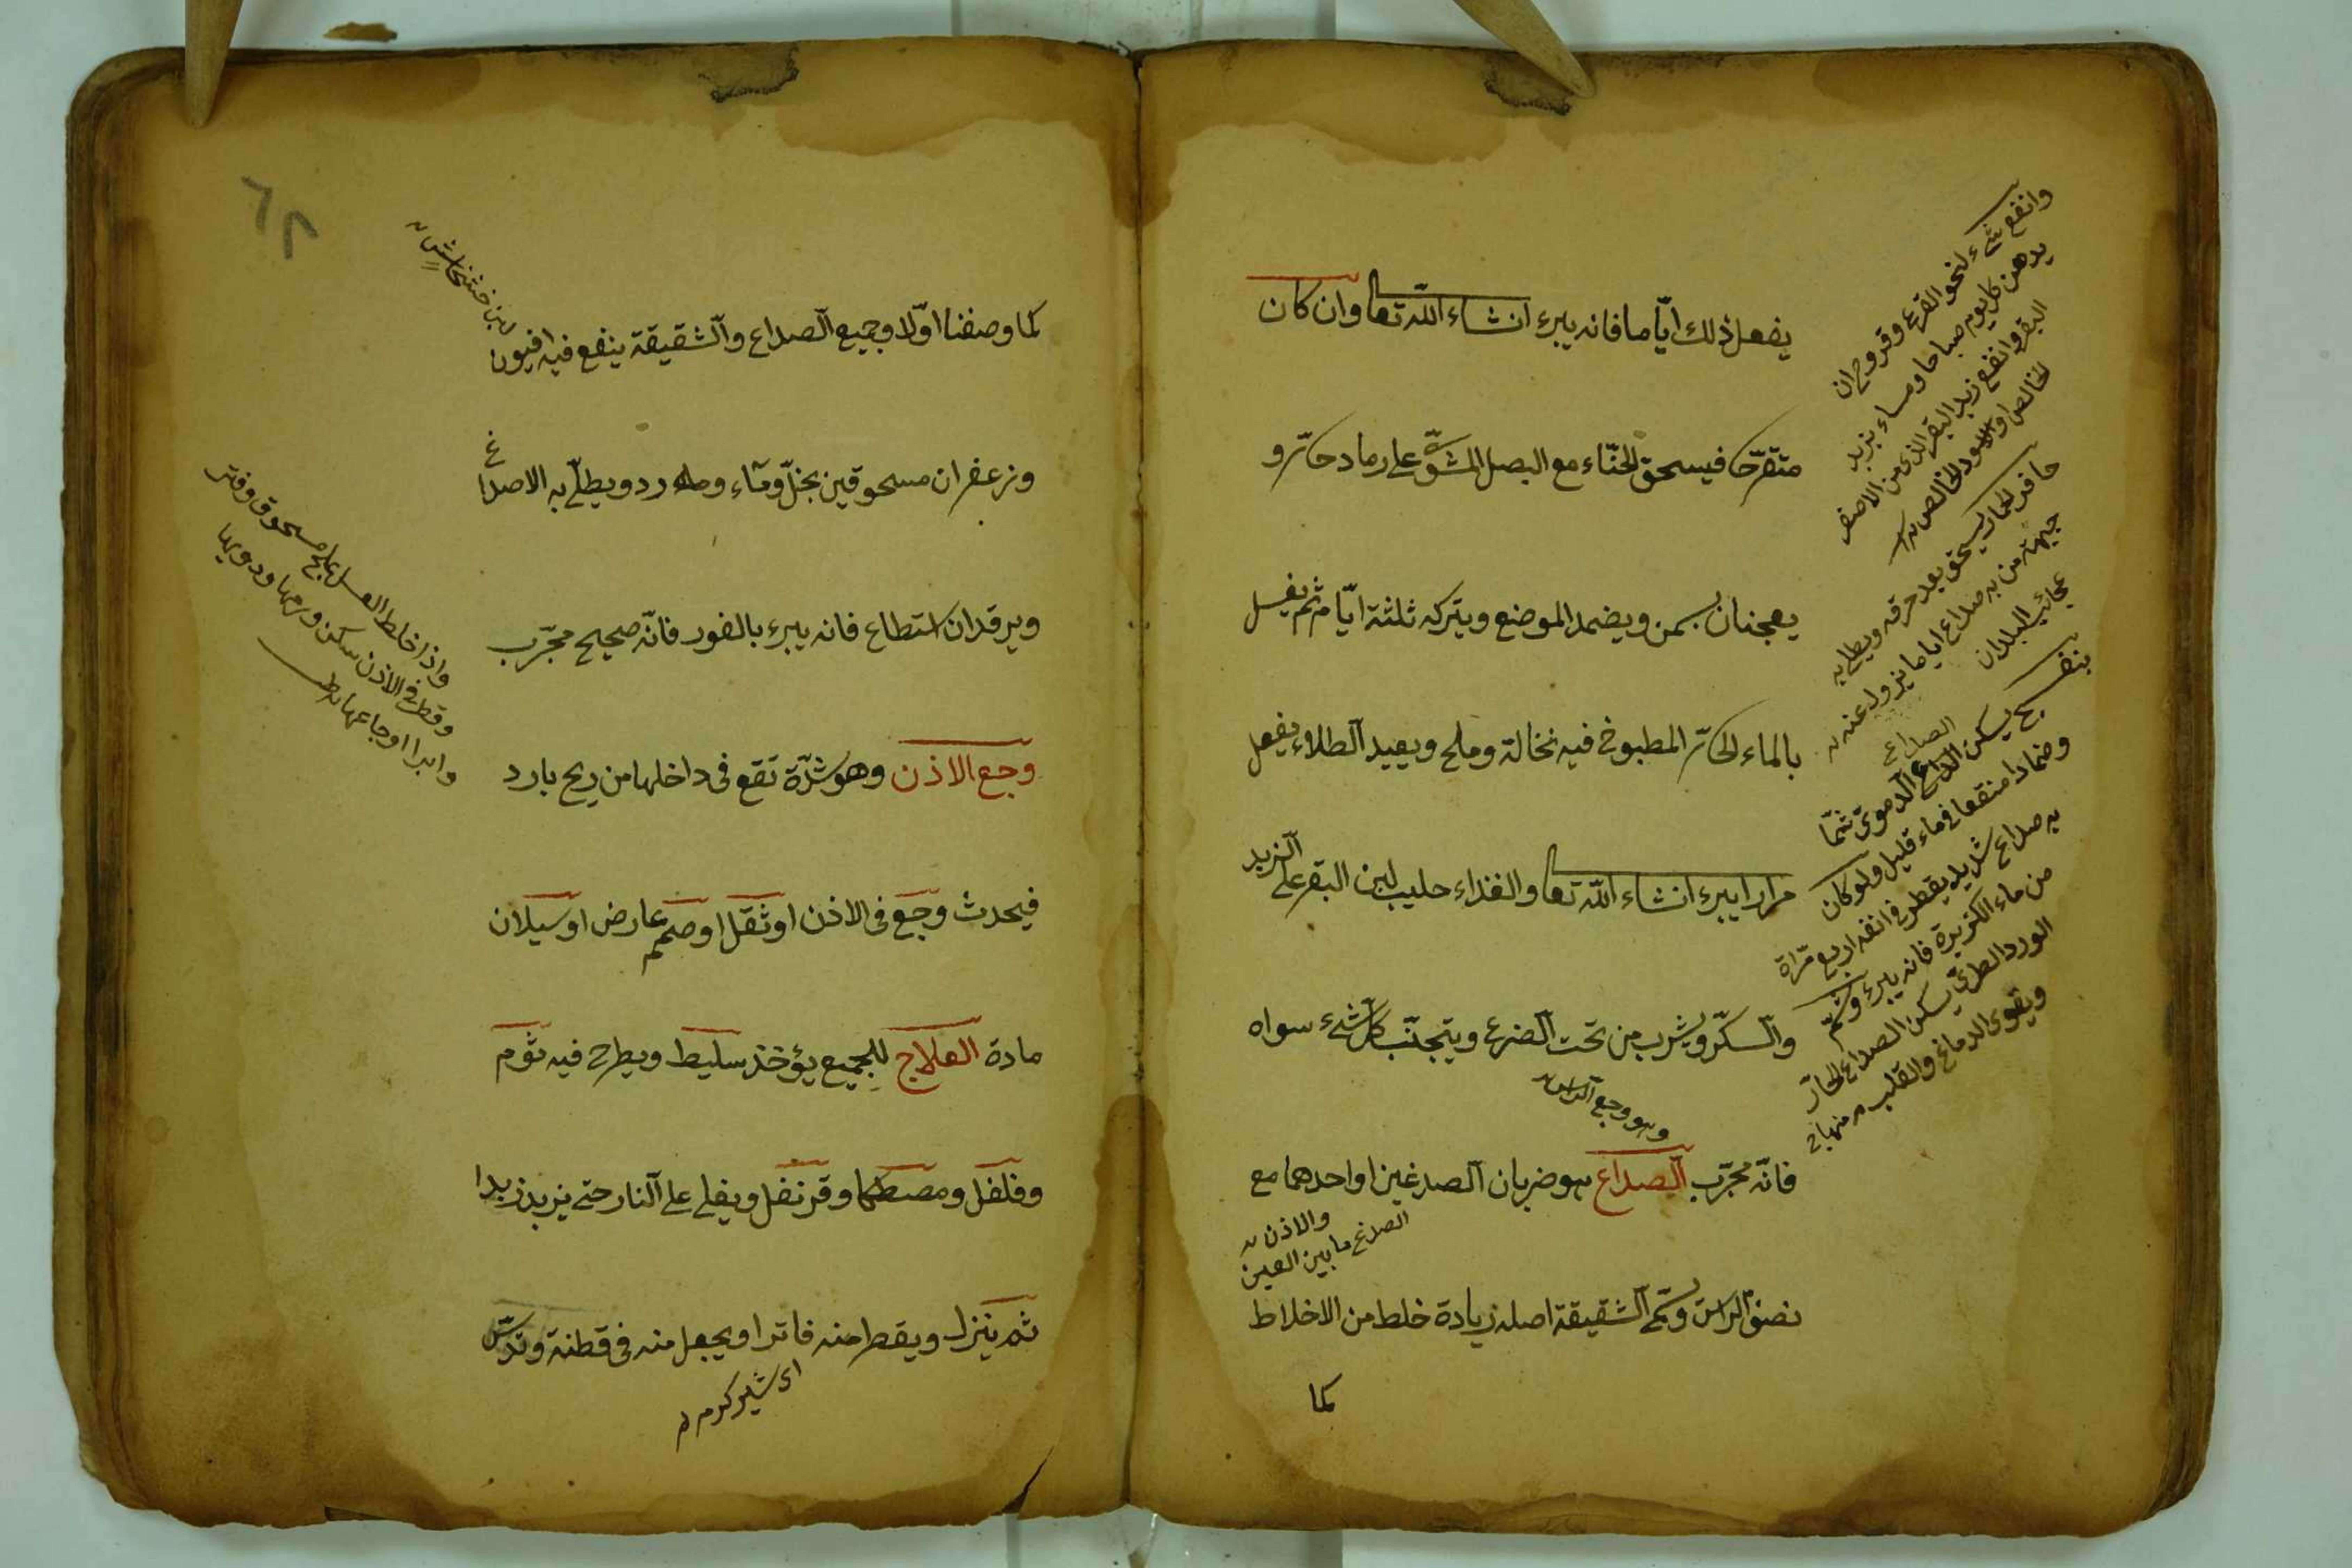 يفعل ذلك ايّاما فانه يبرء انشاء اللّه تعا وان كان
متقرّحا فيسحق الحنّاء مع البصل المشوّى على رماد حارّ و
يعجنان بسمن ويضمد الموضع ويتركه ثلثة ايّام ثم يغسل
بالماء الحارّ المطبوخ فيه نخالة وملح ويعيد الطلاء يفعل
مرارا يبرء انشاء اللّه تعا والغذاء حليب لبن البقر على الزبد
والسكّر ويشرب من تحت الضرع ويتجنّب كل شىء سواه
وهو وجع الراس
فانّه مجرّب الصداع هو ضربان الصدغين او احدهما مع
الصدغ ما بين العين
والاذن
نصف الراس وسمّى الشقيقة اصله زيادة خلط من الاخلاط
كما
وانفع شىء لنحو القرع وقروح ان
يدهن كل يوم صباحا ومساء بزبد
البقر وانفع زبد البقر الذى من الاصفر
الخالص او الاسود الخالص
حافر الحمار يسحق بعد حرقه ويطلى به
جبهة من به صداع اياما يزول عنه
عجائب البلدان
بنفسج يسكن الصداع الدموى شمّا
وضمادا منقعا فى ماء قليل ولو كان
به صداع شديد يقطر فى انفه اربع مرّاة
من ماء الكزبرة فانه يبرء وشمّ
الورد الطرىّ يسكن الصداع الحارّ
ويقوى الدماغ والقلب منهاج
٦٢
لبن خشخاش
كما وصفنا اوّلا وجميع الصداع والشقيقة ينفع فيه افيون
وزعفران مسحوقين بخلّ وماء ورد ويطلّى به الاصداغ
ويرقد ان استطاع فانه يبرء بالفور فانّه صحيح مجرّب
وجع الاذن وهو شدّة تقع فى داخلها من ريح بارد
فيحدث وجع فى الاذن او ثقل او صمم عارض او سيلان
مادة العلاج للجميع يؤخذ سليط ويطرح فيه ثوم
وفلفل ومصطكا وقرنفل ويغلى على النار حتى يزبد زبدا
ثم ينزل ويقطر منه فاترا ويجعل منه فى قطنة وتدسّ
واذا خلط العسل بملح مسحوق وفتر
وقطر فى الاذن سكن ورمها ودويها
وابرا اوجاعها